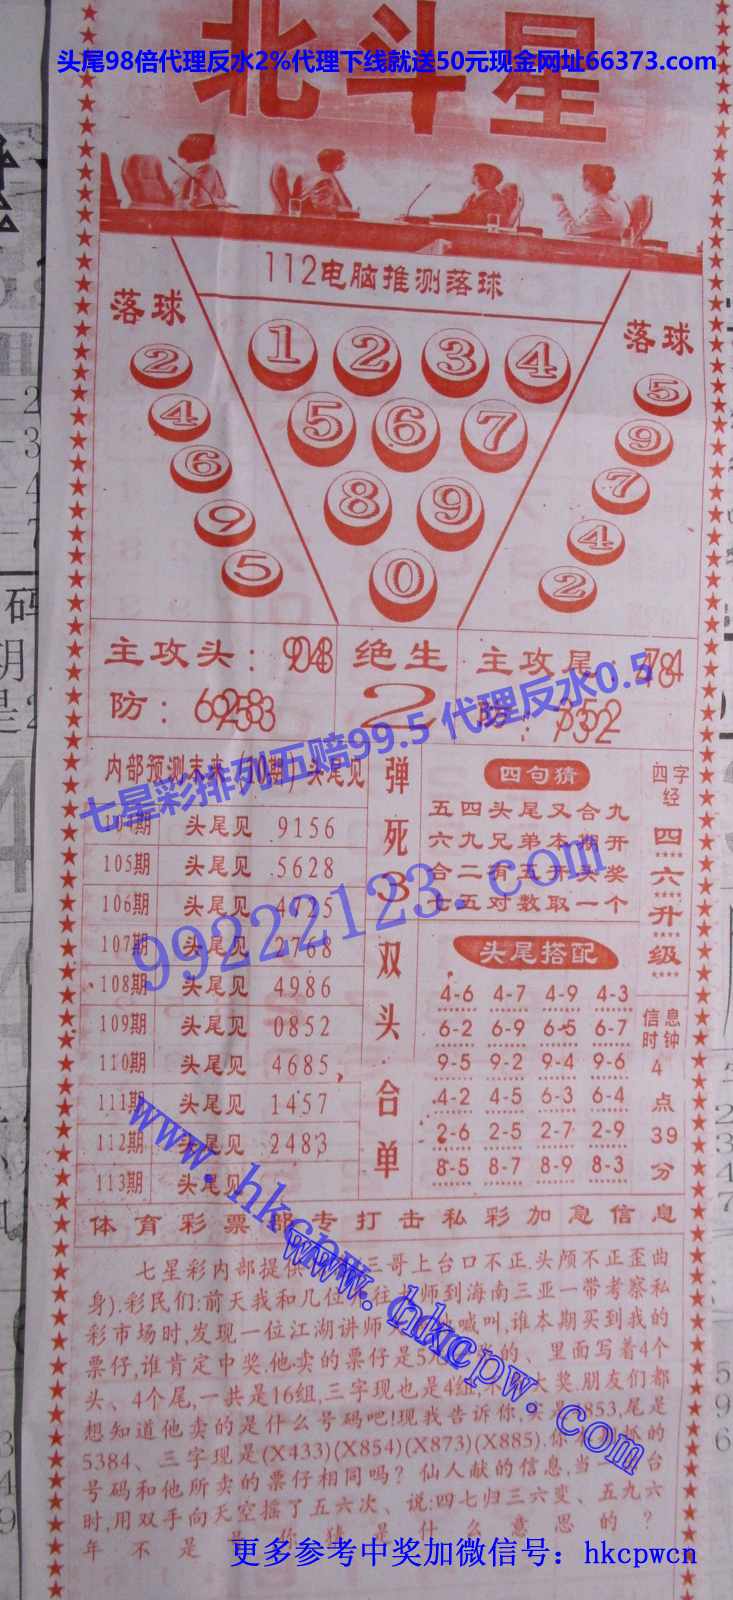 北斗星
头尾98倍代理反水2%代理下线就送50元现金网址66373.com
112电脑推测落球
落球
2
4
6
9
5
1 2 3 4
5 6 7
8 9
0
落球
5
9
7
4
2
主攻头:
防:
绝生
2
主攻尾
防:
七星彩排列五赔99.5 代理反水0.5
内部预测未来(10期)头尾见
104期 头尾见 9156
105期 头尾见 5628
106期 头尾见 4725
107期 头尾见 2768
108期 头尾见 4986
109期 头尾见 0852
110期 头尾见 4685
111期 头尾见 1457
112期 头尾见 2483
113期 头尾见
弹死3
双头合单
四句猜
五四头尾又合九
六九兄弟本期开
合二有五开头奖
七五对数取一个
99222123.com
头尾搭配
4-6 4-7 4-9 4-3
6-2 6-9 6-5 6-7
9-5 9-2 9-4 9-6
4-2 4-5 6-3 6-4
2-6 2-5 2-7 2-9
8-5 8-7 8-9 8-3
四字经
四六升级
信息时钟
4点39分
www.hkcpw.com
体育彩票部专打击私彩加急信息
七星彩内部提供 三哥上台口不正.头颅不正歪曲
身).彩民们:前天我和几位 往 师到海南三亚一带考察私
彩市场时,发现一位江湖讲师 喊叫,谁本期买到我的
票仔,谁肯定中奖.他卖的票仔是5元 的、里面写着4个
头、4个尾,一共是16组,三字现也是4组,不 大奖.朋友们都
想知道他卖的是什么号码吧!现我告诉你, 853,尾是
5384、三字现是(X433)(X854)(X873)(X885).你 抓的
号码和他所卖的票仔相同吗?仙人献的信息,当 台
时,用双手向天空摇了五六次、说:四七归三六变、五九六
年不是 你猜是什么意思的?
www.hkcpw.com
更多参考中奖加微信号：hkcpwcn